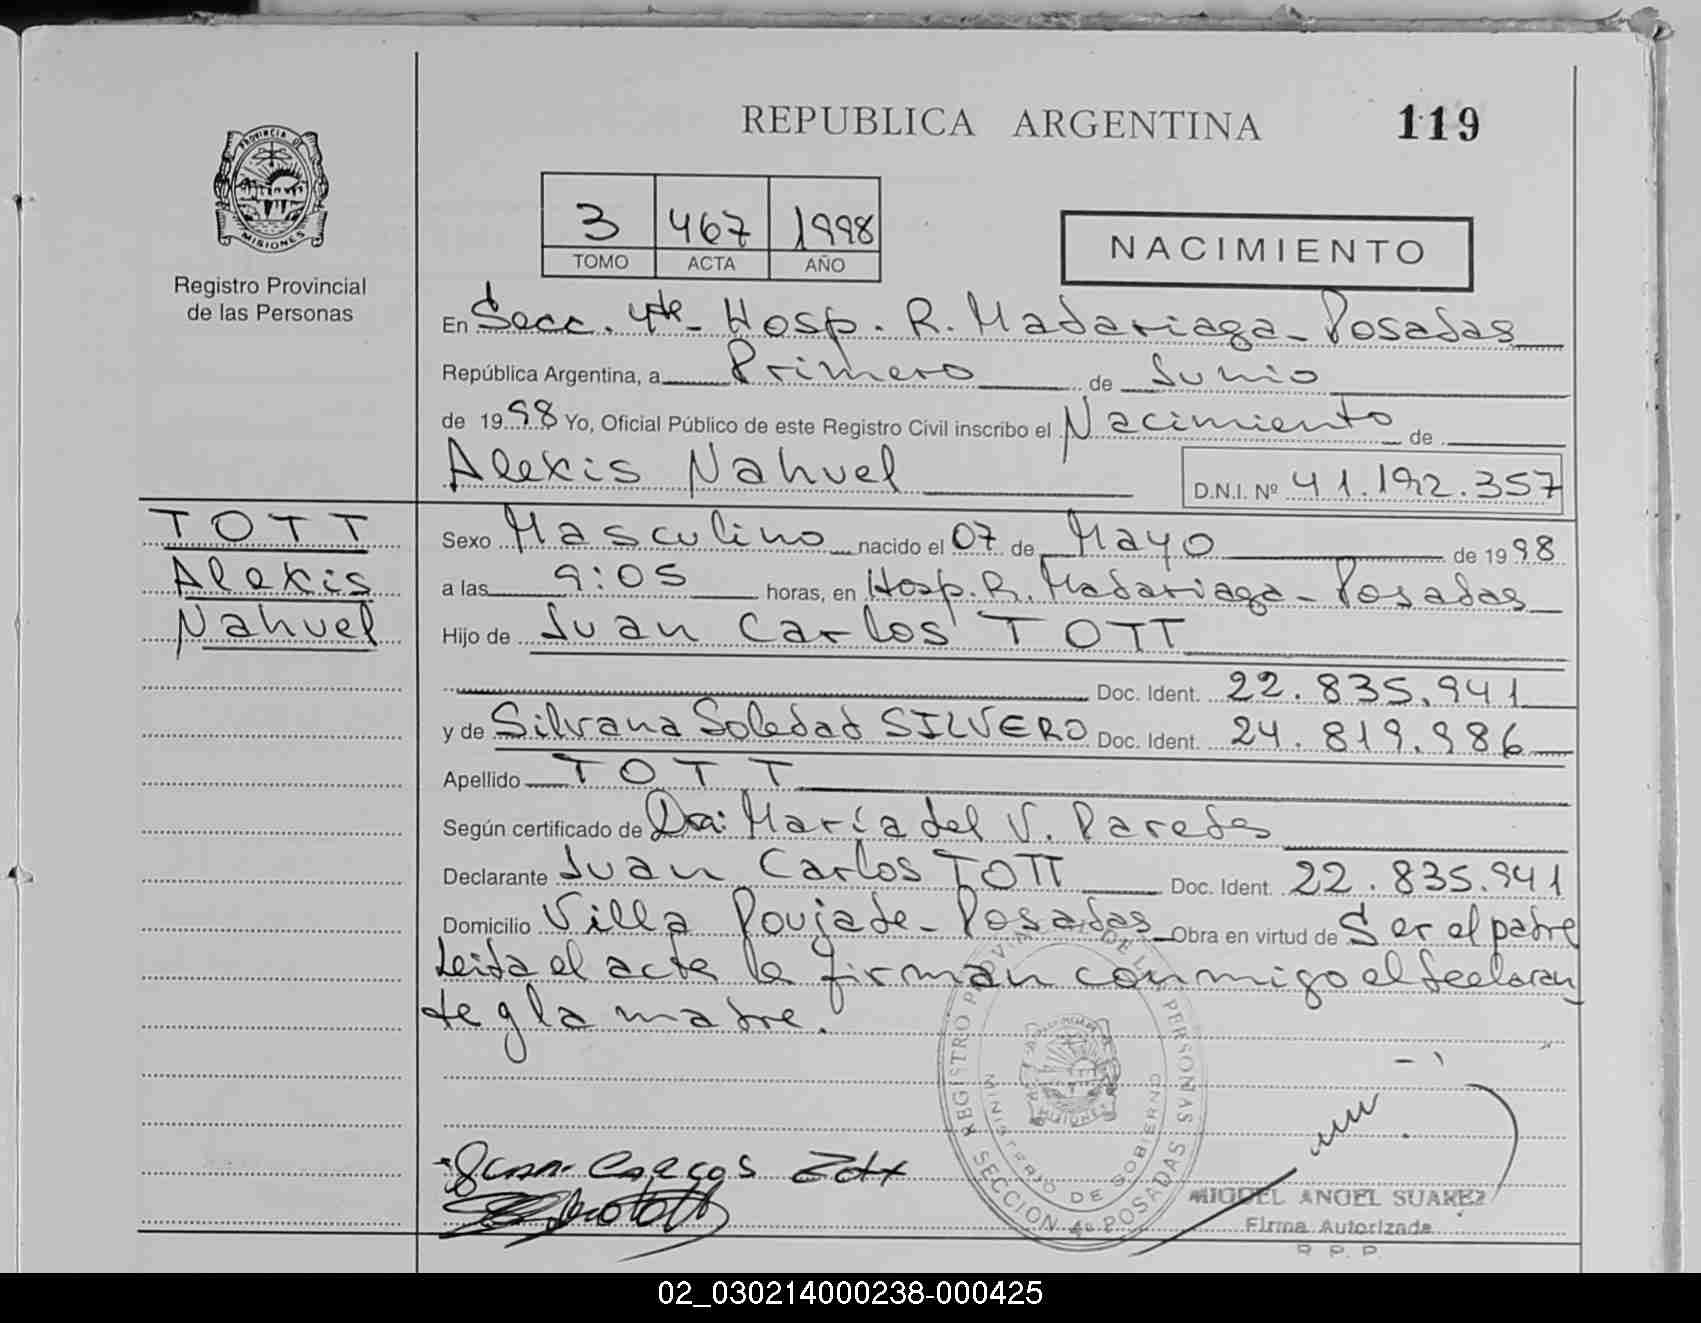 REPUBLICA ARGENTINA
119
PROVINCIA DE
MISIONES
Registro Provincial
de las Personas
3 467 1998
TOMO ACTA AÑO
NACIMIENTO
En Secc. 4ta - Hosp. R. Madariaga - Posadas
República Argentina, a Primero de Junio
de 1998 Yo, Oficial Público de este Registro Civil inscribo el Nacimiento de
Alexis Nahuel
D.N.I. Nº 41.192.357
TOTT
Alexis
Nahuel
Sexo Masculino nacido el 07 de Mayo de 1998
a las 9:05 horas, en Hosp. R. Madariaga - Posadas
Hijo de Juan Carlos TOTT
Doc. Ident. 22.835.941
y de Silvana Soledad SILVERO Doc. Ident. 24.819.986
Apellido TOTT
Según certificado de Dra: María del V. Paredes
Declarante Juan Carlos TOTT Doc. Ident. 22.835.941
Domicilio Villa Poujade - Posadas Obra en virtud de Ser el padre
Leida el acta la firman conmigo el declaran
te y la madre.
REGISTRO PROVINCIAL DE LAS PERSONAS
MINISTERIO DE GOBIERNO
SECCION 4º POSADAS
MISIONES
Juan Carlos Tott
MIGUEL ANGEL SUAREZ
Firma Autorizada
R. P. P.
02_030214000238-000425